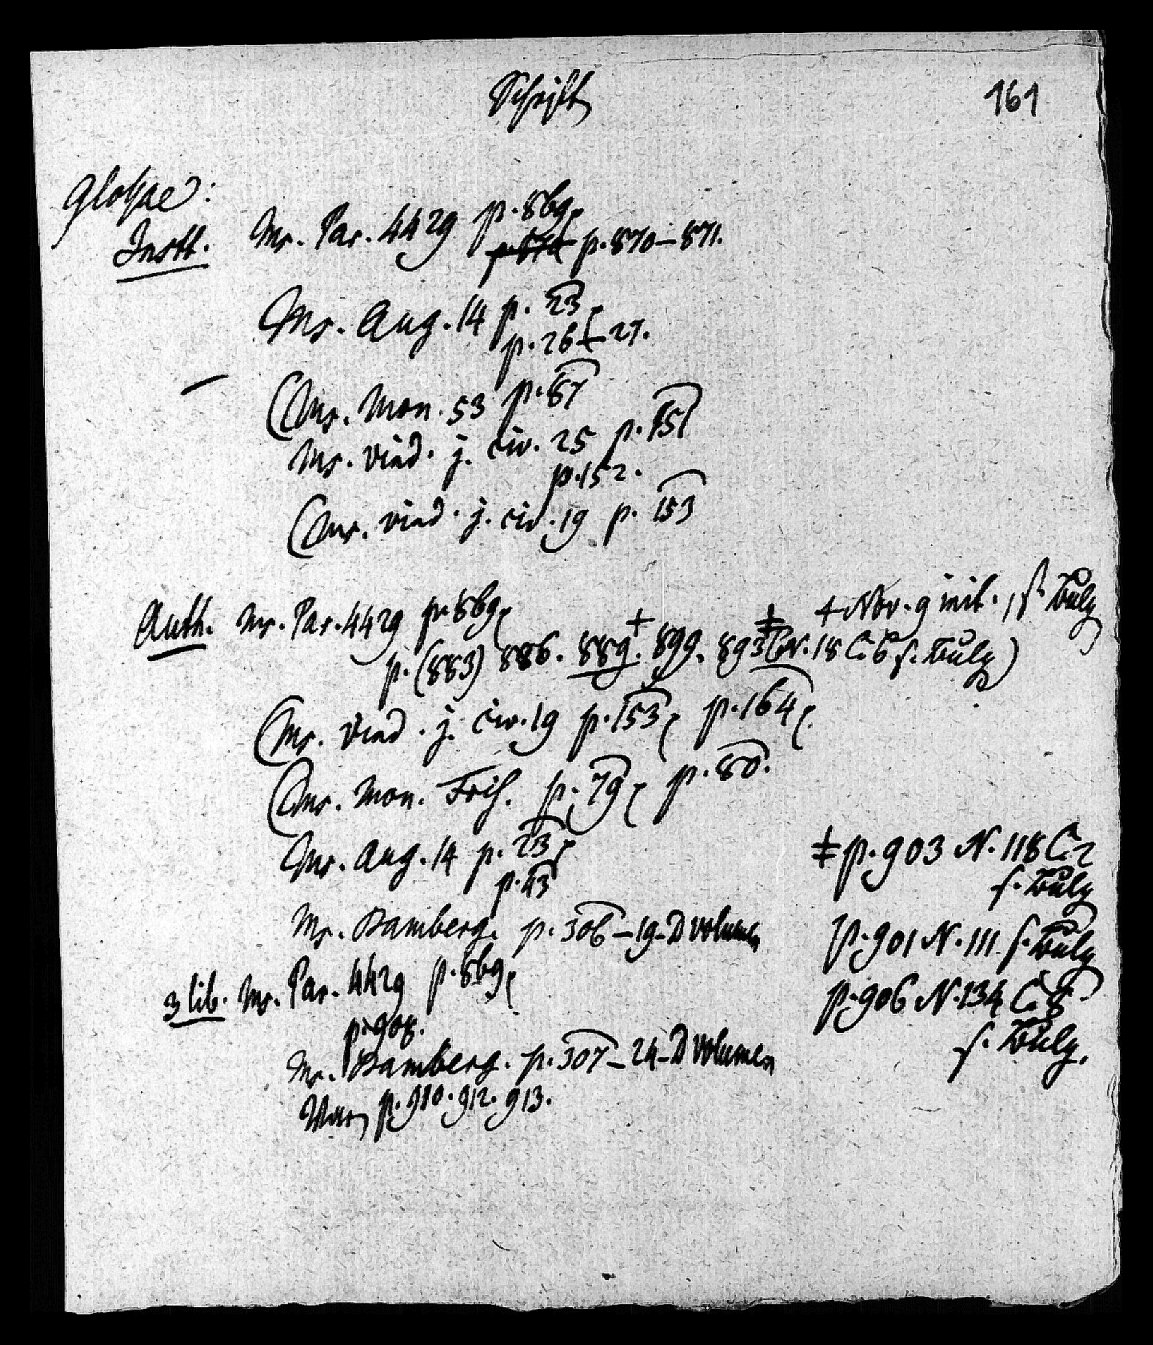 Schrift 161
Glossae:
Instt. Ms. Par. 4429 p. 869
p. 870–871.
Ms. Aug. 14 p. 23
p. 26–27.
(Ms. Mon. 53 p. 87
Ms. vind. j. civ. 25 p. 151
p. 152.
(Ms. vind. j. civ. 19 p. 153
Auth. Ms. Par. 4429 p. 869
+ Nov. 9 init., f. Vulg
p. (883) 886. 889. 899. 893 (N. 18 C. 6 f. Vulg)
(Ms. vind. j. civ. 19 p. 153 p. 164
(Ms. Mon. Fris. p. 79 p. 80.
Ms. Aug. 14 p. 23
p. 43
Ms. Bamberg. p. 306–19–D volumen
3 lib. Ms. Par. 4429 p. 869
p. 908.
Ms. Bamberg. p. 307–24–D volumen
p. 910. 912. 913.
‡ p. 903 N. 118 C. 2
f. Vulg
p. 901 N. 111 f. Vulg
p. 906 N. 134 C. 8
f. Vulg.